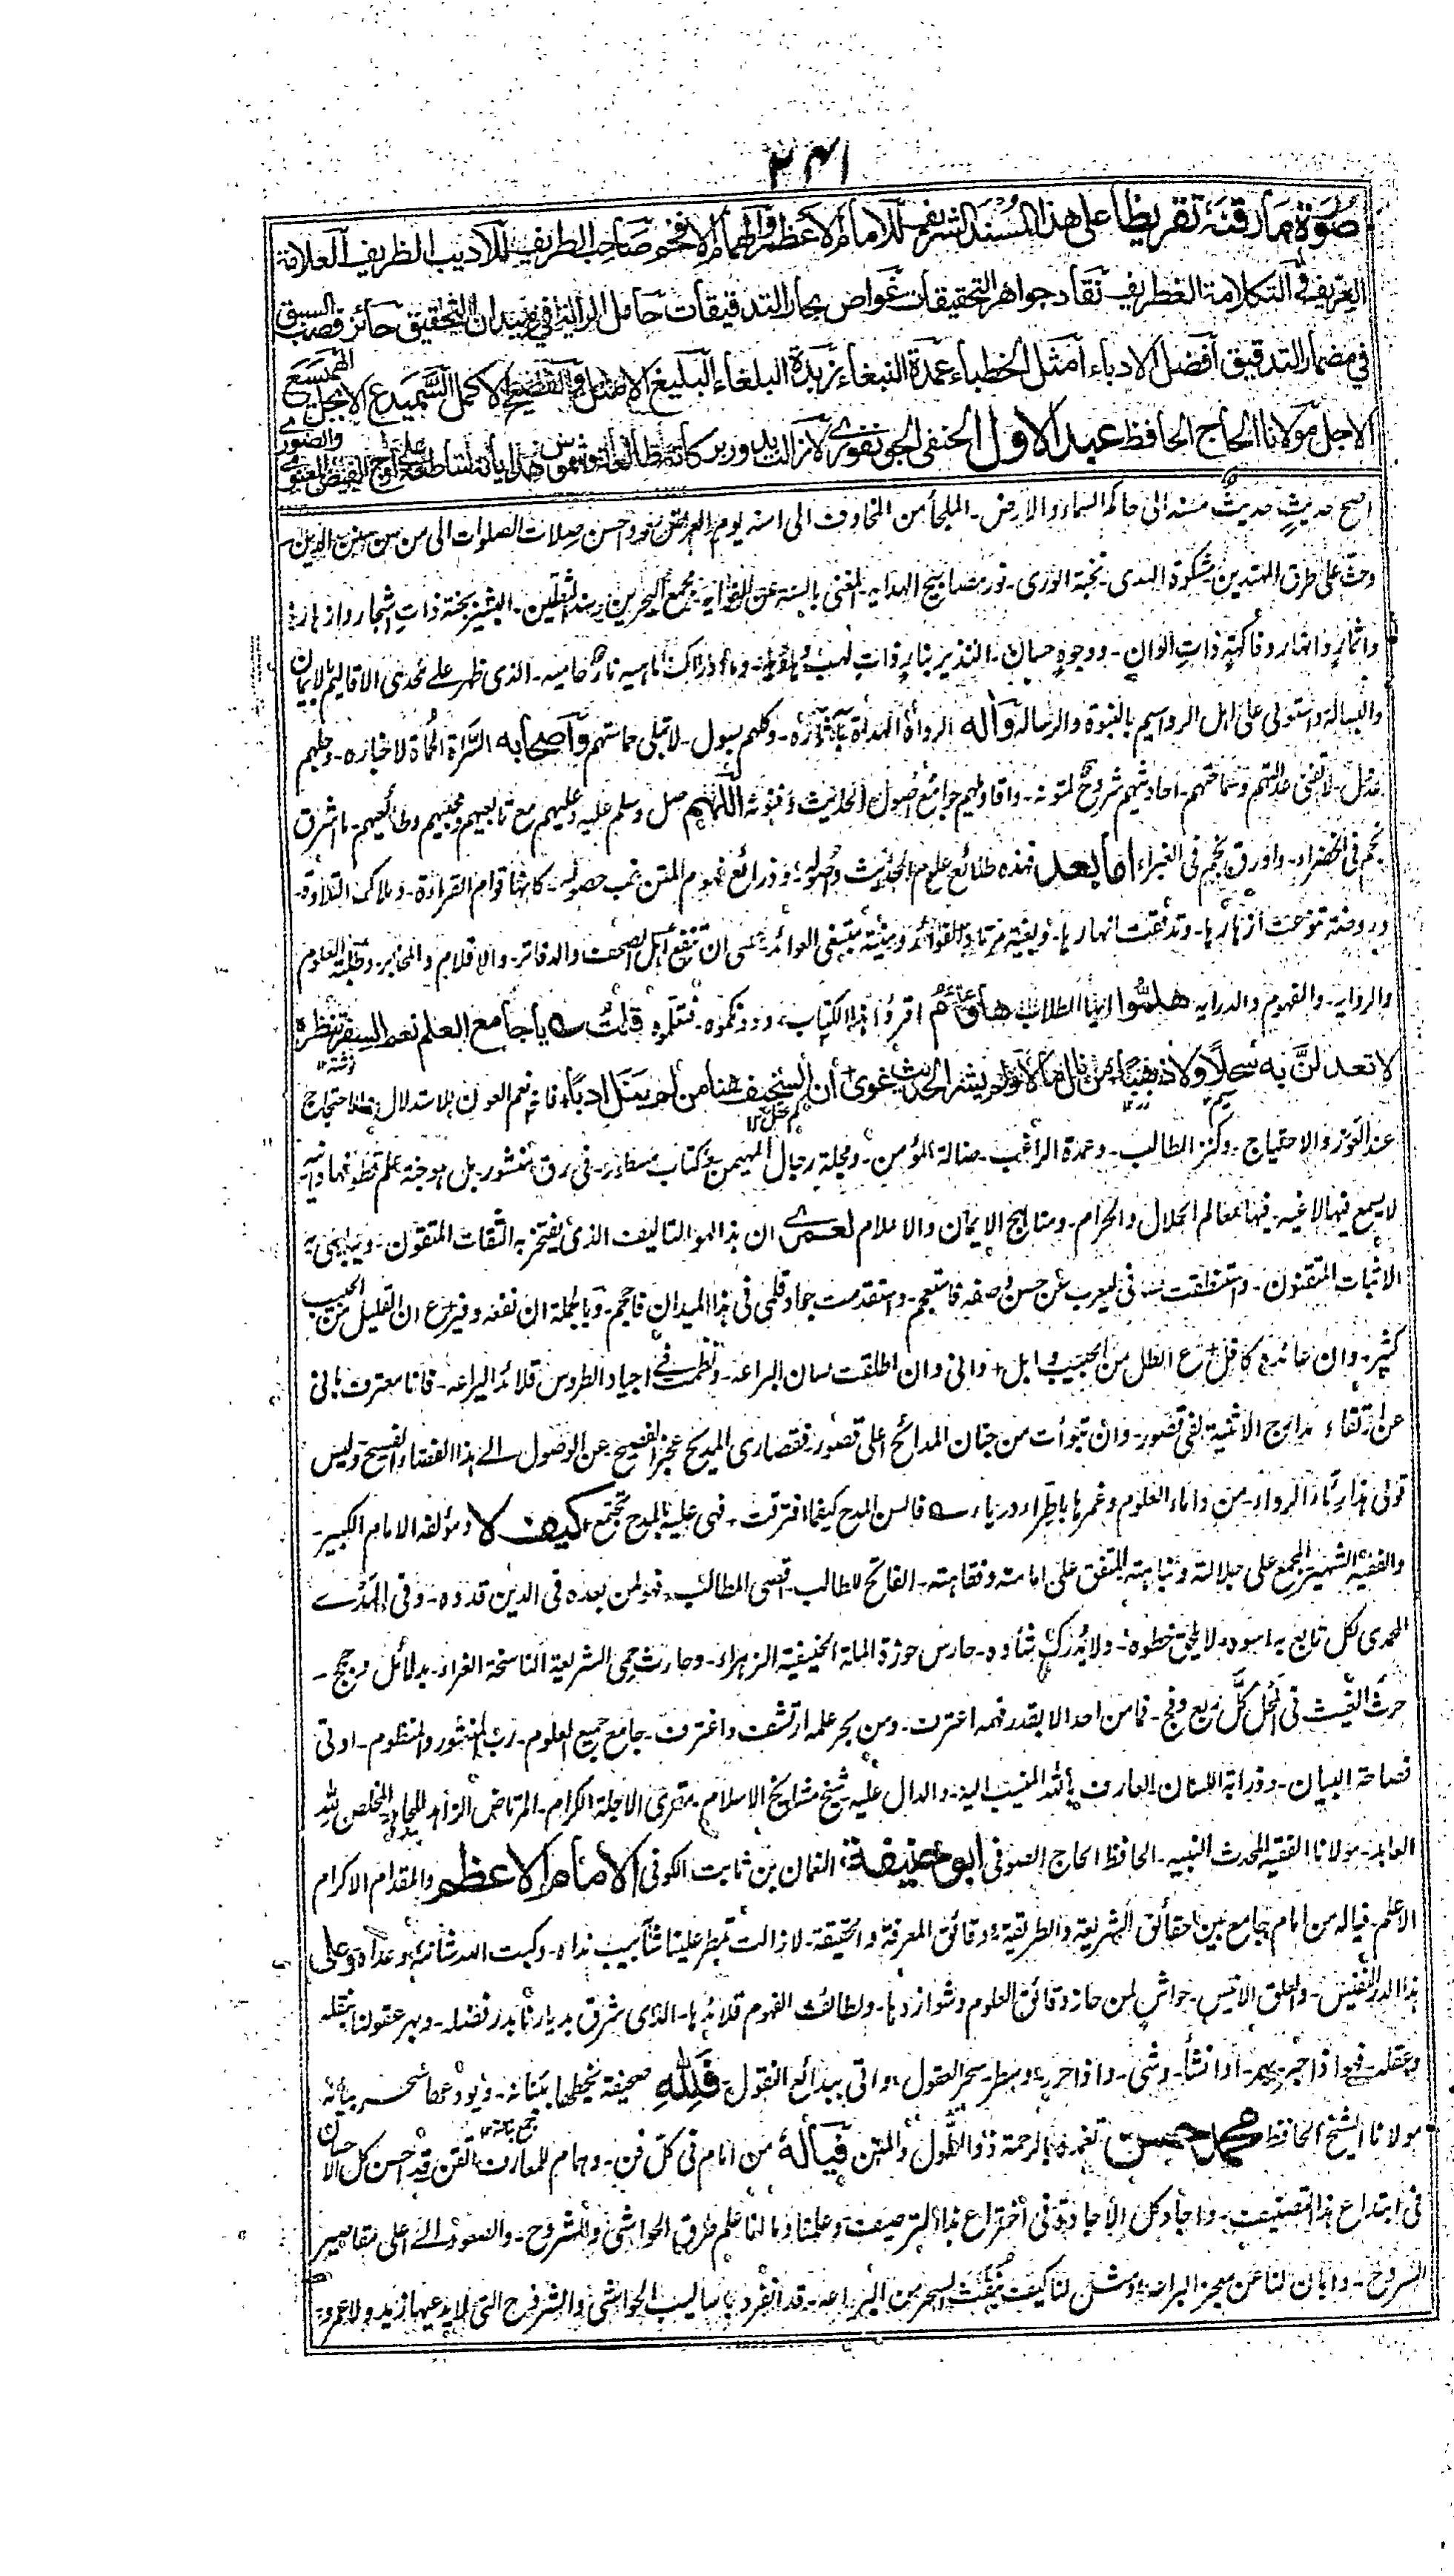 ۲۴۱
صورة ما رقمه تقريظا على هذا المسند الشريف للامام الاعظم والهمام الافخم صاحب الطريف الاديب الظريف العلامة
الغريف التكلامة الغطريف نقاد جواهر التحقيقات غواص بحار التدقيقات حامل الراية في ميدان التحقيق حائز قصب السبق
في مضمار التدقيق افضل الادباء امثل الخطباء عمدة النبغاء زبدة البلغاء البليغ الامثل والفصيح الاكمل السميدع الابجل الهميسع
الاجل مولانا الحاج الحافظ عبد الاول الحنفي الجونفوري لا زالت بدور بركاته طالعة وشموس هداياته ساطعة
اصح حديث حديث مسند الى حاكم السماء والارض۔ الملجأ من المخاوف الى امنه يوم العرض واحسن صلات الصلوات الى من سن سنن الدين
وحث على طرق المهتدين۔ مشكوة الهدى۔ نخبة الورى۔ نور مصابيح الهداية۔ المغني بالسنة عن الغواية۔ مجمع البحرين۔ سند الثقلين۔ البشير بجنة ذات اشجار وازهار
واثمار وانهار وفاكهة ذات الوان۔ ووجوه حسان۔ النذير بنار ذات لهب وما ادراك ماهيه نار حاميه۔ الذي ظهر على الاقاليم بالايمان
والبسالة واستولى على اهل الرواسيم بالنبوة والرساله وآله الرواة الهداة۔ وكلهم۔ لا تبلى حماستهم واصحابه السراة الحماة لاخباره۔ وجلهم
عدل۔ لا تفنى عدالتهم وسماحتهم۔ احاديثهم شروح لمتونه۔ واقاويلهم جوامع اصول الحديث وفنونه اللهم صل وسلم عليه وعليهم مع تابعيهم ومحبيهم وطائعيهم۔ ما اشرق
نجم في الخضراء۔ واورق نجم في الغبراء اما بعد فهذه طلائع علوم الحديث واصوله۔ وذرائع فهوم المتن غب حصوله۔ كانها قوام القراءة۔ وملاك التلاوة۔
وروضة تضوعت ازهارها۔ وتدفقت انهارها۔ وبغية مرتاد الفوائد ومنية مبتغي العوائد۔ عسى ان تنفع اهل الصحف والدفاتر۔ والاقلام والمحابر۔ وطلبة العلوم
والروايه۔ والفهوم والدرايه هلموا ايها الطلاب هاؤم اقرؤا هذا الكتاب، ودونكموه۔ فتعلموه قلت يا جامع العلم نعم السفر تنظره
لا تعدلن به سجلا ولا ذهبا، من نال ما لا ولم يشر الحديث غوى، ان السخيف هنا من لم ينل ادبا، فانه نعم العون للاستدلال والاحتجاج
عند العوز والاحتياج۔ وكنز الطالب۔ وعمدة الراغب۔ ضالة المؤمن۔ ومجلة رجال المهيمن۔ وكتاب مسطور۔ في رق منشور۔ بل هو جنة علم قطوفها دانيه
لا يسمع فيها لاغيه۔ فيها معالم الحلال والحرام۔ ومناهج الايمان والاسلام لعمري ان هذا لهو التاليف الذي يفتخر به الثقات المتقون۔ ويباهي به
الاثبات المتقنون۔ واستنطقت فمي ليعرب عن حسن وصفه فاستعجم۔ واستقدمت جواد قلمي في هذا الميدان فاحجم۔ وبالجملة ان نفعه وفير ع ان القليل من الحبيب
كثير۔ وان عائده كافل ع الطل من الحبيب وابل، واني وان اطلقت لسان البراعه۔ ونظمت في اجياد الطروس قلائد اليراعه۔ فانا معترف باني
عن ارتقاء مدارج الاثنية لفي قصور۔ وان تبوأت من جنان المدائح اعلى قصور۔ فقصارى المديح عجز الفصيح عن الوصول الى هذا الفضاء الفسيح وليس
كيف لا ومؤلفه الامام الكبير۔
والفقيه الشهير۔ المجمع على جلالته ونباهته۔ المتفق على امامته وفقاهته۔ الفاتح للطالب۔ اقصى المطالب۔ فهو لمن بعده في الدين قدوه۔ وفي الهدى
المحمدي لكل تابع به اسوه۔ لا يلحق خطوه۔ ولا يدرك شأوه۔ حارس حوزة الملة الحنيفية الزهراء۔ وحارث حمى الشريعة الناسخة الغراء۔ بدلائل وحجج۔
حرث الغيث في المحل كل ربع وفج۔ فما من احد الا بقدر فهمه اعترف۔ ومن بحر علمه ارتشف واغترف۔ جامع جميع العلوم۔ رب المنثور والمنظوم۔ اوتي
فصاحة البيان۔ وذرابة اللسان۔ العارف بالله المنيب اليه۔ والدال عليه۔ شيخ مشايخ الاسلام۔ مقري الاجلة الكرام۔ المرتاض الزاهد المجاهد المخلص لله
العابد۔ مولانا الفقيه المحدث النبيه۔ الحافظ الحاج الصوفي ابو حنيفة، النعمان بن ثابت الكوفي الامام الاعظم والمقدام الاكرام
الاعلم۔ فياله من امام جامع بين حقائق الشريعة والطريقة، ودقائق المعرفة والحقيقة۔ لا زالت تمطر علينا شآبيب نداه۔ وكبت الله شانئه وعداه وعلى
هذا الدر النفيس۔ والعلق الانيس۔ حواش لمن حاز دقائق العلوم وشواردها۔ ولطائف الفهوم قلائدها۔ الذي شرق بديارنا بدر فضله۔ وبهر عقولنا بنقله
وعقله۔ فهو اذا حبر بهر۔ او انشأ۔ وشى۔ واذا حرر، وسطر۔ سحر العقول، واتى ببدائع النقول۔ فلله صحيفة يخطها بنانه۔ سحر بيانه
مولانا الشيخ الحافظ محمد حسن تغمده بالرحمة ذو الطول والمنن فياله من امام في كل فن۔ وهمام للمعارف القن قد احسن كل الاحسان
في ابتداع هذا التصنيف۔ واجاد كل الاجادة في اختراع هذا الترصيف وعلمنا ما لنا علم طرق الحواشي والشروح۔ والصعود الى اعلى مقاصير
الصروح۔ وابان لنا عن معجز البراعه، ومثل لنا كيف ينفث السحر من اليراعه۔ قد انفرد باساليب الحواشي والشروح التي